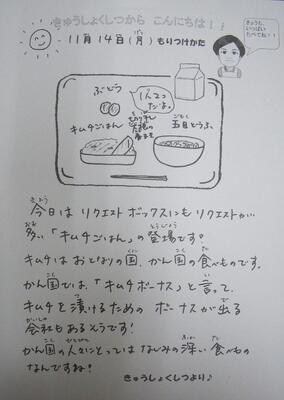 きゅうしょくしつから こんにちは！
きょうも、
いっぱい
たべてね！！
11月14日(月) もりつけかた
ぶどう
1人2つ
だよ。
キムチごはん
五目とうふ
今日は リクエスト ボックスにも リクエストが
多い「キムチごはん」の登場です。
キムチは おとなりの国、かん国の食べものです。
かん国では、「キムチボーナス」と言って、
キムチを漬けるための ボーナスが出る
会社もあるそうです！
かん国の人々にとっては なじみの深い 食べもの
なんですね！
きゅうしょくしつより♪